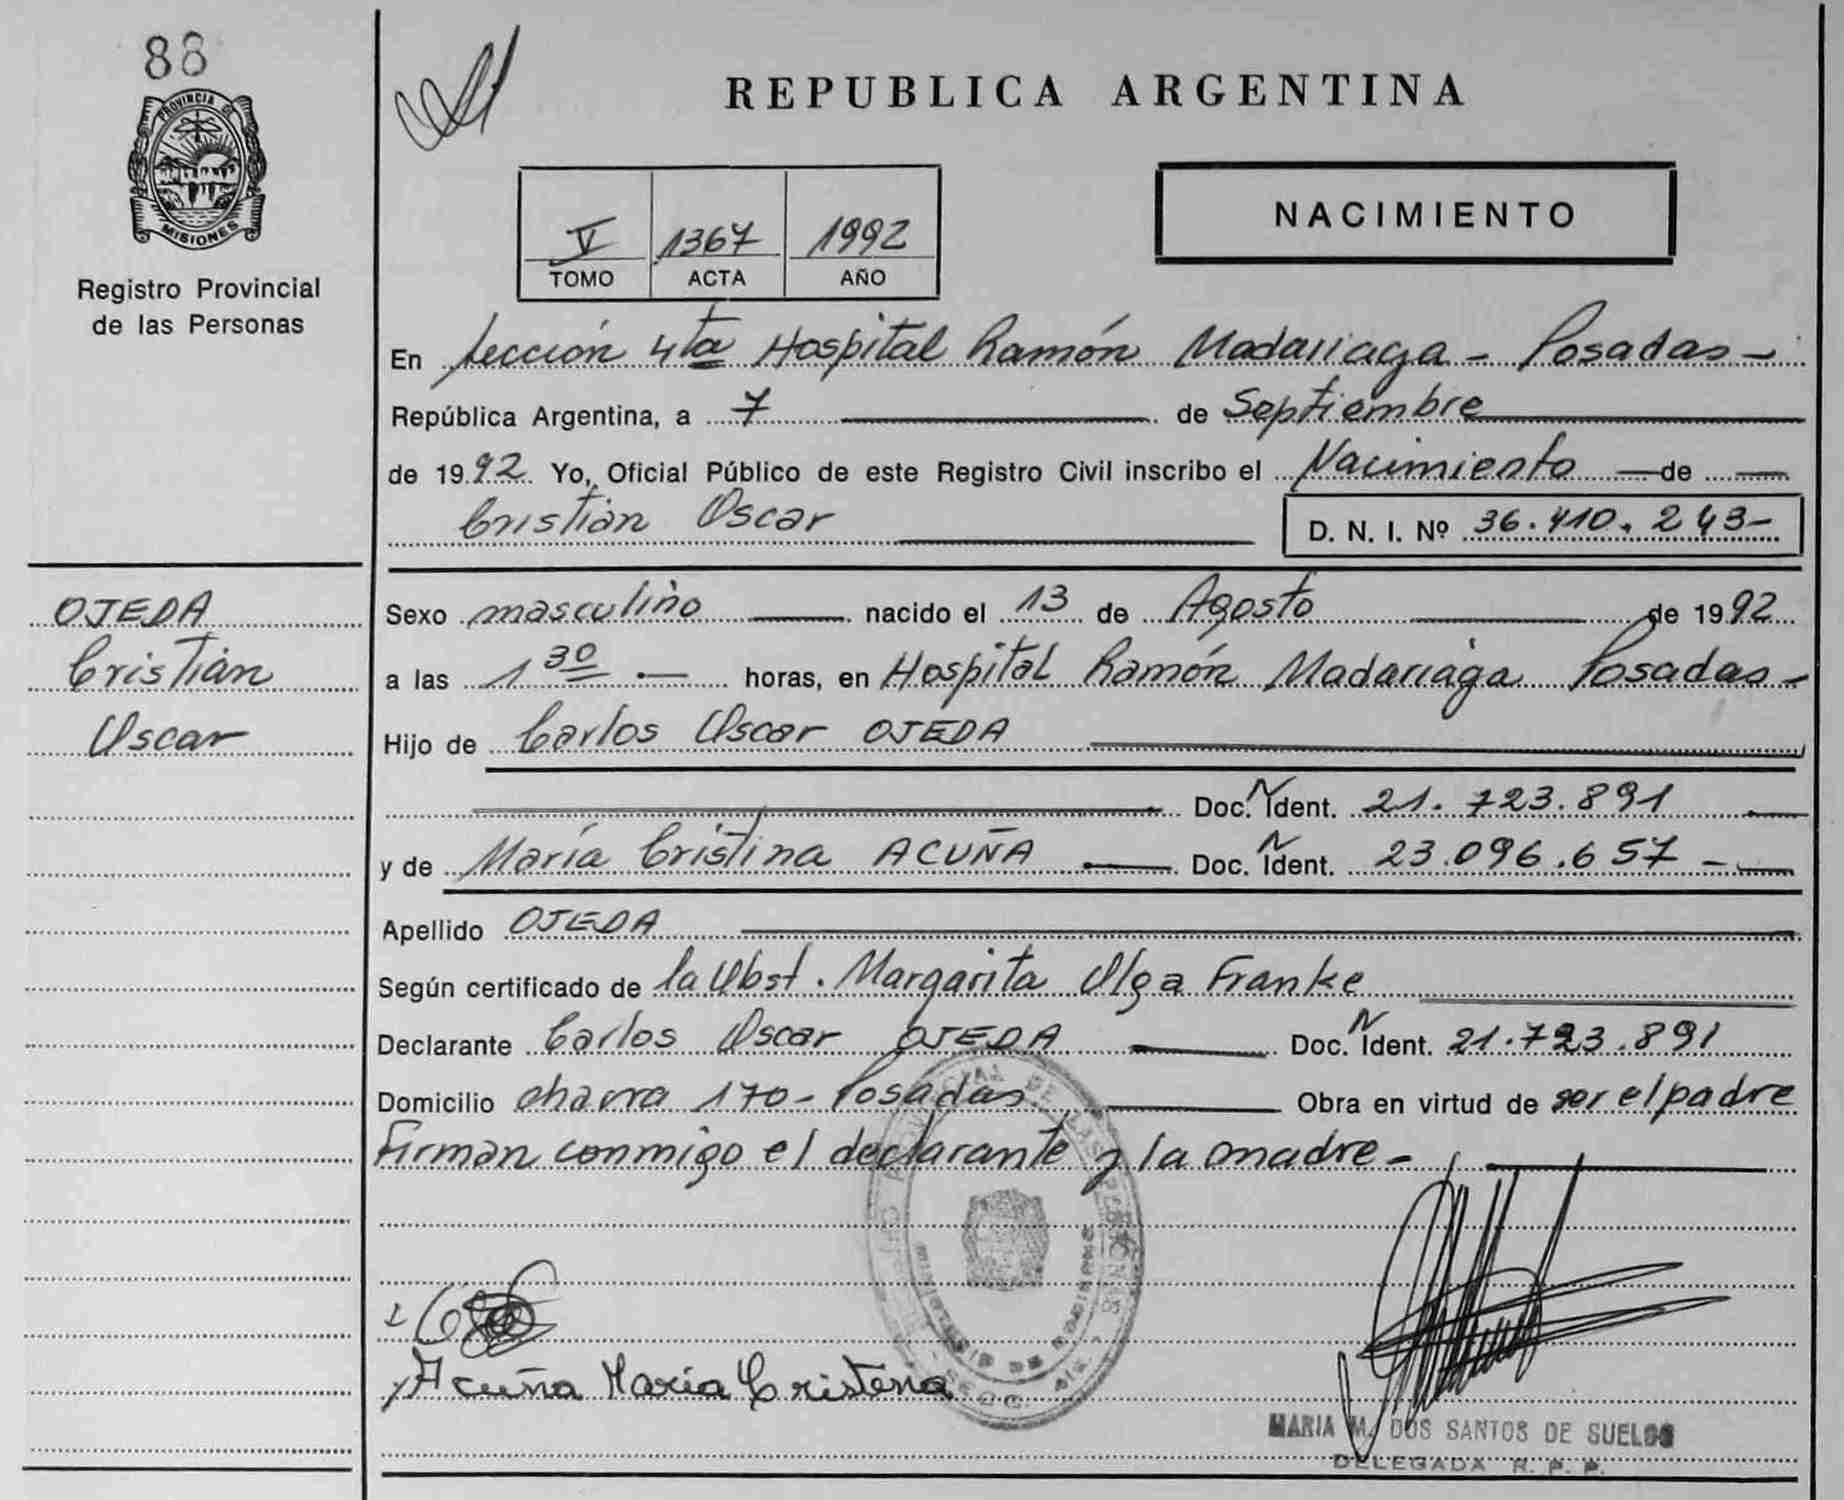 88
PROVINCIA DE
MISIONES
Registro Provincial
de las Personas
REPUBLICA ARGENTINA
V 1367 1992
TOMO ACTA AÑO
NACIMIENTO
En Sección 4ta Hospital Ramón Madariaga - Posadas -
República Argentina, a 7 de Septiembre
de 1992 Yo, Oficial Público de este Registro Civil inscribo el Nacimiento de
Cristián Oscar D. N. I. Nº 36.410.243-
OJEDA
Cristián
Oscar
Sexo masculino nacido el 13 de Agosto de 1992
a las 1 30 horas, en Hospital Ramón Madariaga Posadas -
Hijo de Carlos Oscar OJEDA
Doc. N Ident. 21.723.891
y de María Cristina ACUÑA Doc. N Ident. 23.096.657 -
Apellido OJEDA
Según certificado de la Obst. Margarita Olga Franke
Declarante Carlos Oscar OJEDA Doc. N Ident. 21.723.891
Domicilio chacra 170 - Posadas Obra en virtud de ser el padre
Firman conmigo el declarante y la madre -
Acuña María Cristina
MARIA M. DOS SANTOS DE SUELOS
DELEGADA R. P. P.